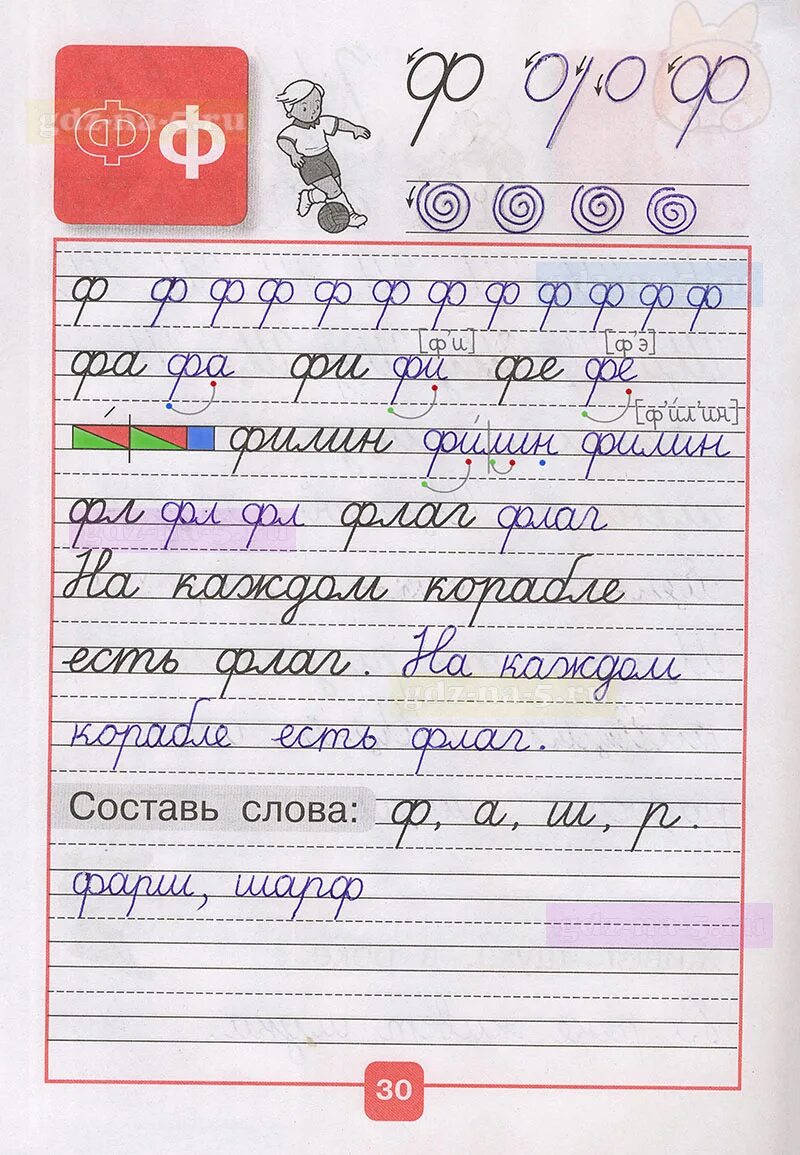 Ф ф
gdz-na-5.ru
ф о / о ф
ф ф ф ф ф ф ф ф ф ф ф ф
[ф'и] [ф'э]
фа фа фи фи фе фе
[ф'и́л'ин]
филин фи́лин филин
фл фл фл флаг флаг
gdz-na-5.ru
На каждом корабле
есть флаг. На каждом
gdz-na-5.ru
корабле есть флаг.
Составь слова: ф, а, ш, р.
фарш, шарф
gdz-na-5.ru
30